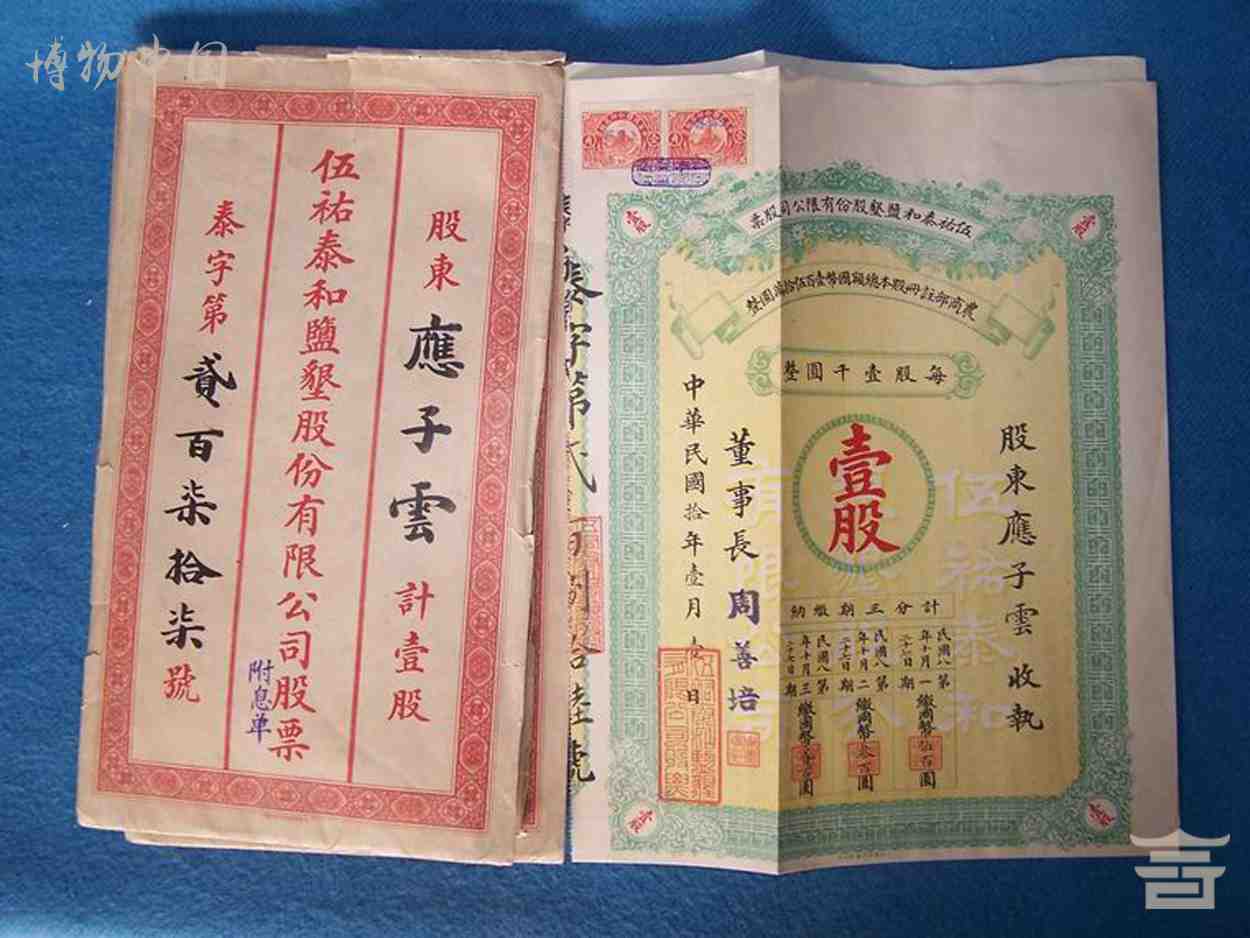 博物中国
股東 應子雲 計壹股
伍祐泰和鹽墾股份有限公司股票
附息单
泰字第 貳百柒拾柒 號
伍祐泰和鹽墾股份有限公司股票
農商部註冊股本總額國幣壹百伍拾萬圓整
每股壹千圓整
壹股
股東應子雲收執
計分三期繳納
民國八年十月二十七日
第一期
繳國幣伍百圓
民國八年十月二十七日
第二期
繳國幣叁百圓
第三期
董事長周善培
中華民國拾年壹月壹日
伍祐泰和
有限公司